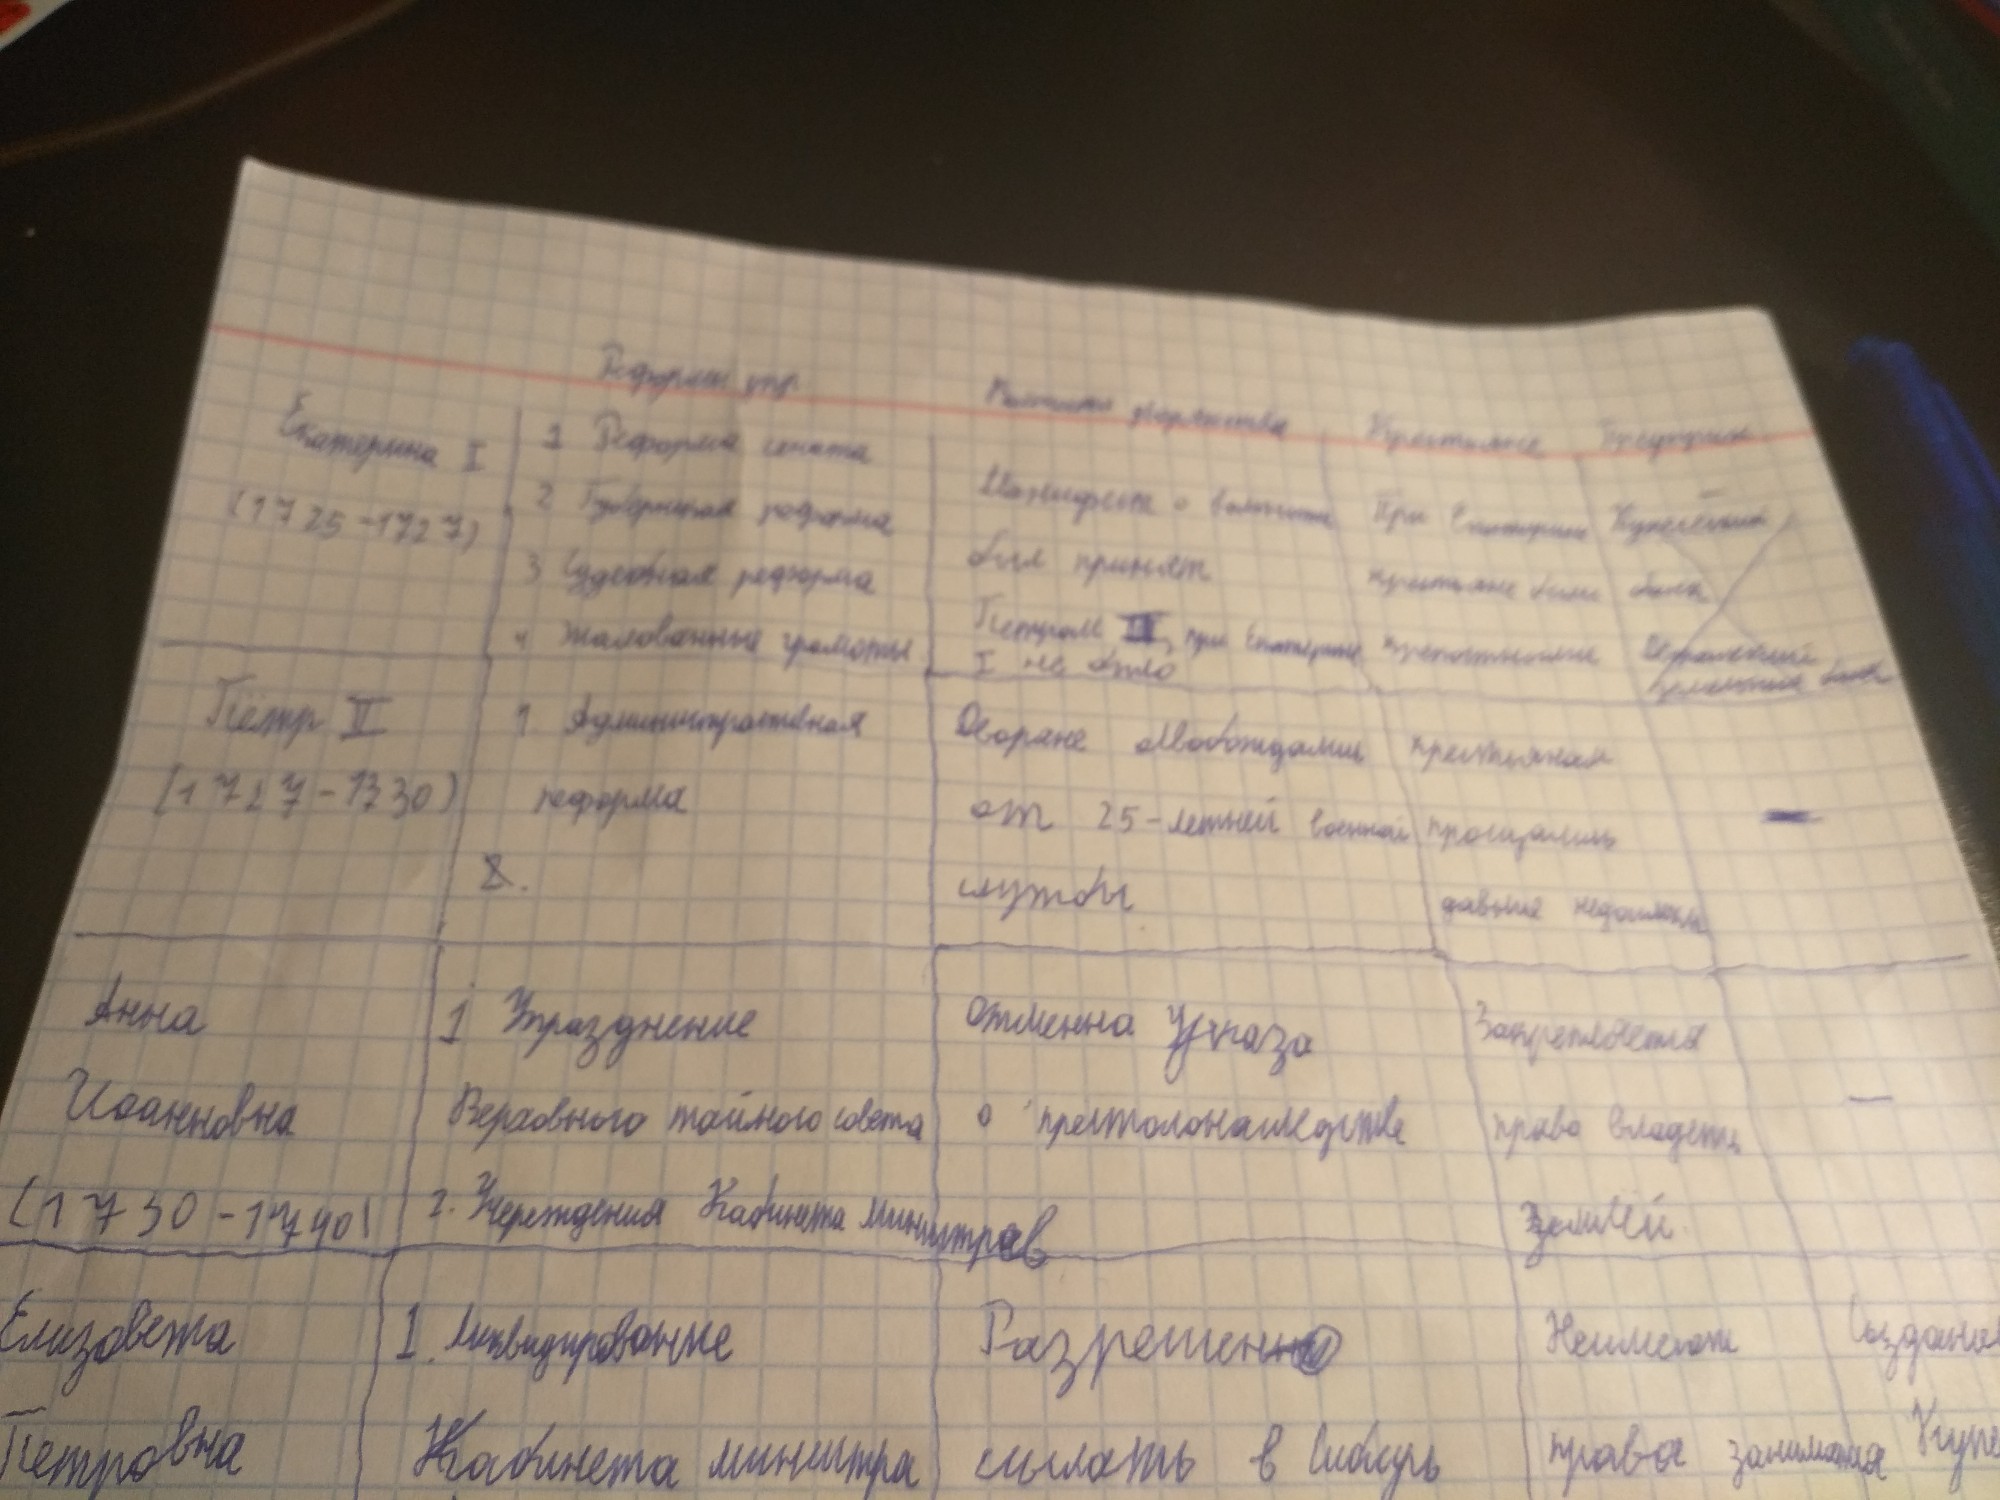 Реформы упр. дворянства Крестьяне
Екатерина I
(1725-1727)
1 Реформа сената
2 Губернская реформа
3 Судебная реформа
4 Жалованные грамоты
Манифест о вольности
был принят
Петром III, при Екатерине
I не было
При Екатерине
крестьяне были
крепостными
Купеческий
банк
банк
Пётр II
(1727-1730)
1. Административная
реформа
2.
Дворяне освобождались
от 25-летней военной
службы
крестьянам
прощались
давние недоимки
-
Анна
Иоанновна
(1730-1740)
1 Упразднение
Верховного тайного совета
2. Учереждения Кабинета министров
отменна Указа
о престолонаследстве
Закрепляется
право владеть
землёй.
-
Елизавета
Петровна
1. Ликвидирование
Кабинета министра
Разрешенно
сылать в Сибирь
Неимеют
права занимания
Создано
Купе